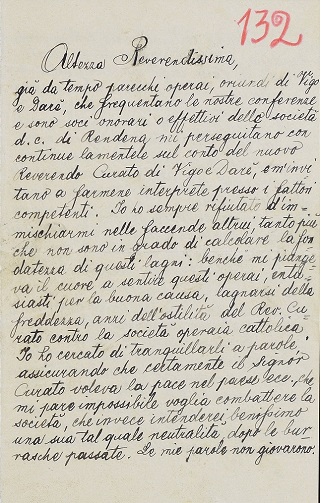 132
Altezza Reverendissima,
già da tempo parecchi operai, oriundi di Vigo
e Darè, che frequentano le nostre conferenze
e sono soci onorari o effettivi della società
d. c. di Rendena mi perseguitano con
continue lamentele sul conto del nuovo
Reverendo Curato di Vigo e Darè, e m'invi
tano a farmene interprete presso i fattori
competenti. Io ho sempre rifiutato d'im-
mischiarmi nelle faccende altrui, tanto più
che non sono in grado di calcolare la fon
datezza di questi lagni: benchè mi piange
va il cuore a sentire questi operai, entu
siasti per la buona causa, lagnarsi della
freddezza, anzi dell'ostilità del Rev. Cu
rato contro la società operaia cattolica.
Io ho cercato di tranquillarli a parole
assicurando che certamente il Signor
Curato voleva la pace nel paese ecc. che
mi pare impossibile voglia combattere la
società, che invece intenderei benissimo
una sua tal quale neutralità, dopo le bur
rasche passate. Le mie parole non giovarono.